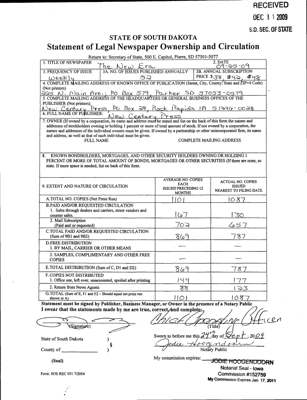 RECEIVED
DEC 11 2009
S.D. SEC. OF STATE
STATE OF SOUTH DAKOTA
Statement of Legal Newspaper Ownership and Circulation
Return to: Secretary of State, 500 E. Capitol, Pierre, SD 57501-5077
1. TITLE OF NEWSPAPER The New Era
2. DATE 09-29-09
3. FREQUENCY OF ISSUE weekly
3A. NO. OF ISSUES PUBLISHED ANNUALLY 52
3B. ANNUAL SUBSCRIPTION PRICE
4. COMPLETE MAILING ADDRESS OF KNOWN OFFICE OF PUBLICATION (Street, City, County, State and ZIP+4 Code)
(Not printers)
PO Box 579, Parker SD 57053-0579
5. COMPLETE MAILING ADDRESS OF THE HEADQUARTERS OR GENERAL BUSINESS OFFICES OF THE
PUBLISHER (Not printer)
New Century Press, PO Box 28, Rock Rapids IA 51246-0028
6. FULL NAME OF PUBLISHER: New Century Press
7. OWNER (If owned by a corporation, its name and address must be stated and list on the back of this form the names and
addresses of stockholders owning or holding 1 percent or more of total amount of stock. If not owned by a corporation, the
names and addresses of the individual owners must be given. If owned by a partnership or other unincorporated firm, its name
and address, as well as that of each individual must be given.
FULL NAME COMPLETE MAILING ADDRESS
8. KNOWN BONDHOLDERS, MORTGAGEES, AND OTHER SECURITY HOLDERS OWNING OR HOLDING 1
PERCENT OR MORE OF TOTAL AMOUNT OF BONDS, MORTGAGES OR OTHER SECURITIES (If there are none, so
state. If more space is needed, list on back of this form.
9. EXTENT AND NATURE OF CIRCULATION
AVERAGE NO. COPIES EACH ISSUED PRECEDING 12 MONTHS
ACTUAL NO. COPIES ISSUED NEAREST TO FILING DATE
A. TOTAL NO. COPIES (Net Press Run) 1101 1087
B. PAID AND/OR REQUESTED CIRCULATION
1. Sales through dealers and carriers, street vendors and
counter sales. 167 130
2. Mail Subscription
(Paid and or requested) 702 657
C. TOTAL PAID AND/OR REQUESTED CIRCULATION
(Sum of 9B1 and 9B2) 869 787
D. FREE DISTRIBUTION
1. BY MAIL, CARRIER OR OTHER MEANS
2. SAMPLES, COMPLIMENTARY AND OTHER FREE
COPIES
E. TOTAL DISTRIBUTION (Sum of C, D1 and D2) 869 787
F. COPIES NOT DISTRIBUTED
1. Office use, left over, unaccounted, spoiled after printing 144 177
2. Return from News Agents 88 123
G. TOTAL (Sum of E, F1 and F2 - Should equal net press run
shown in A) 1101 1087
Statement must be signed by Publisher, Business Manager, or Owner in the presence of a Notary Public
I swear that the statements made by me are true, correct, and complete.
(Signature)
Chief Operating Officer
(Title)
State of South Dakota )
§
County of )
Sworn to before me this 29th day of Sept, 2009
Jodie Hoogendoorn
Notary Public
(Seal)
My commission expires:
JODIE HOOGENDOORN
Notarial Seal - Iowa
Commission #152759
My Commission Expires Jan. 17, 2011
Form: SOS REC 051 7/2004